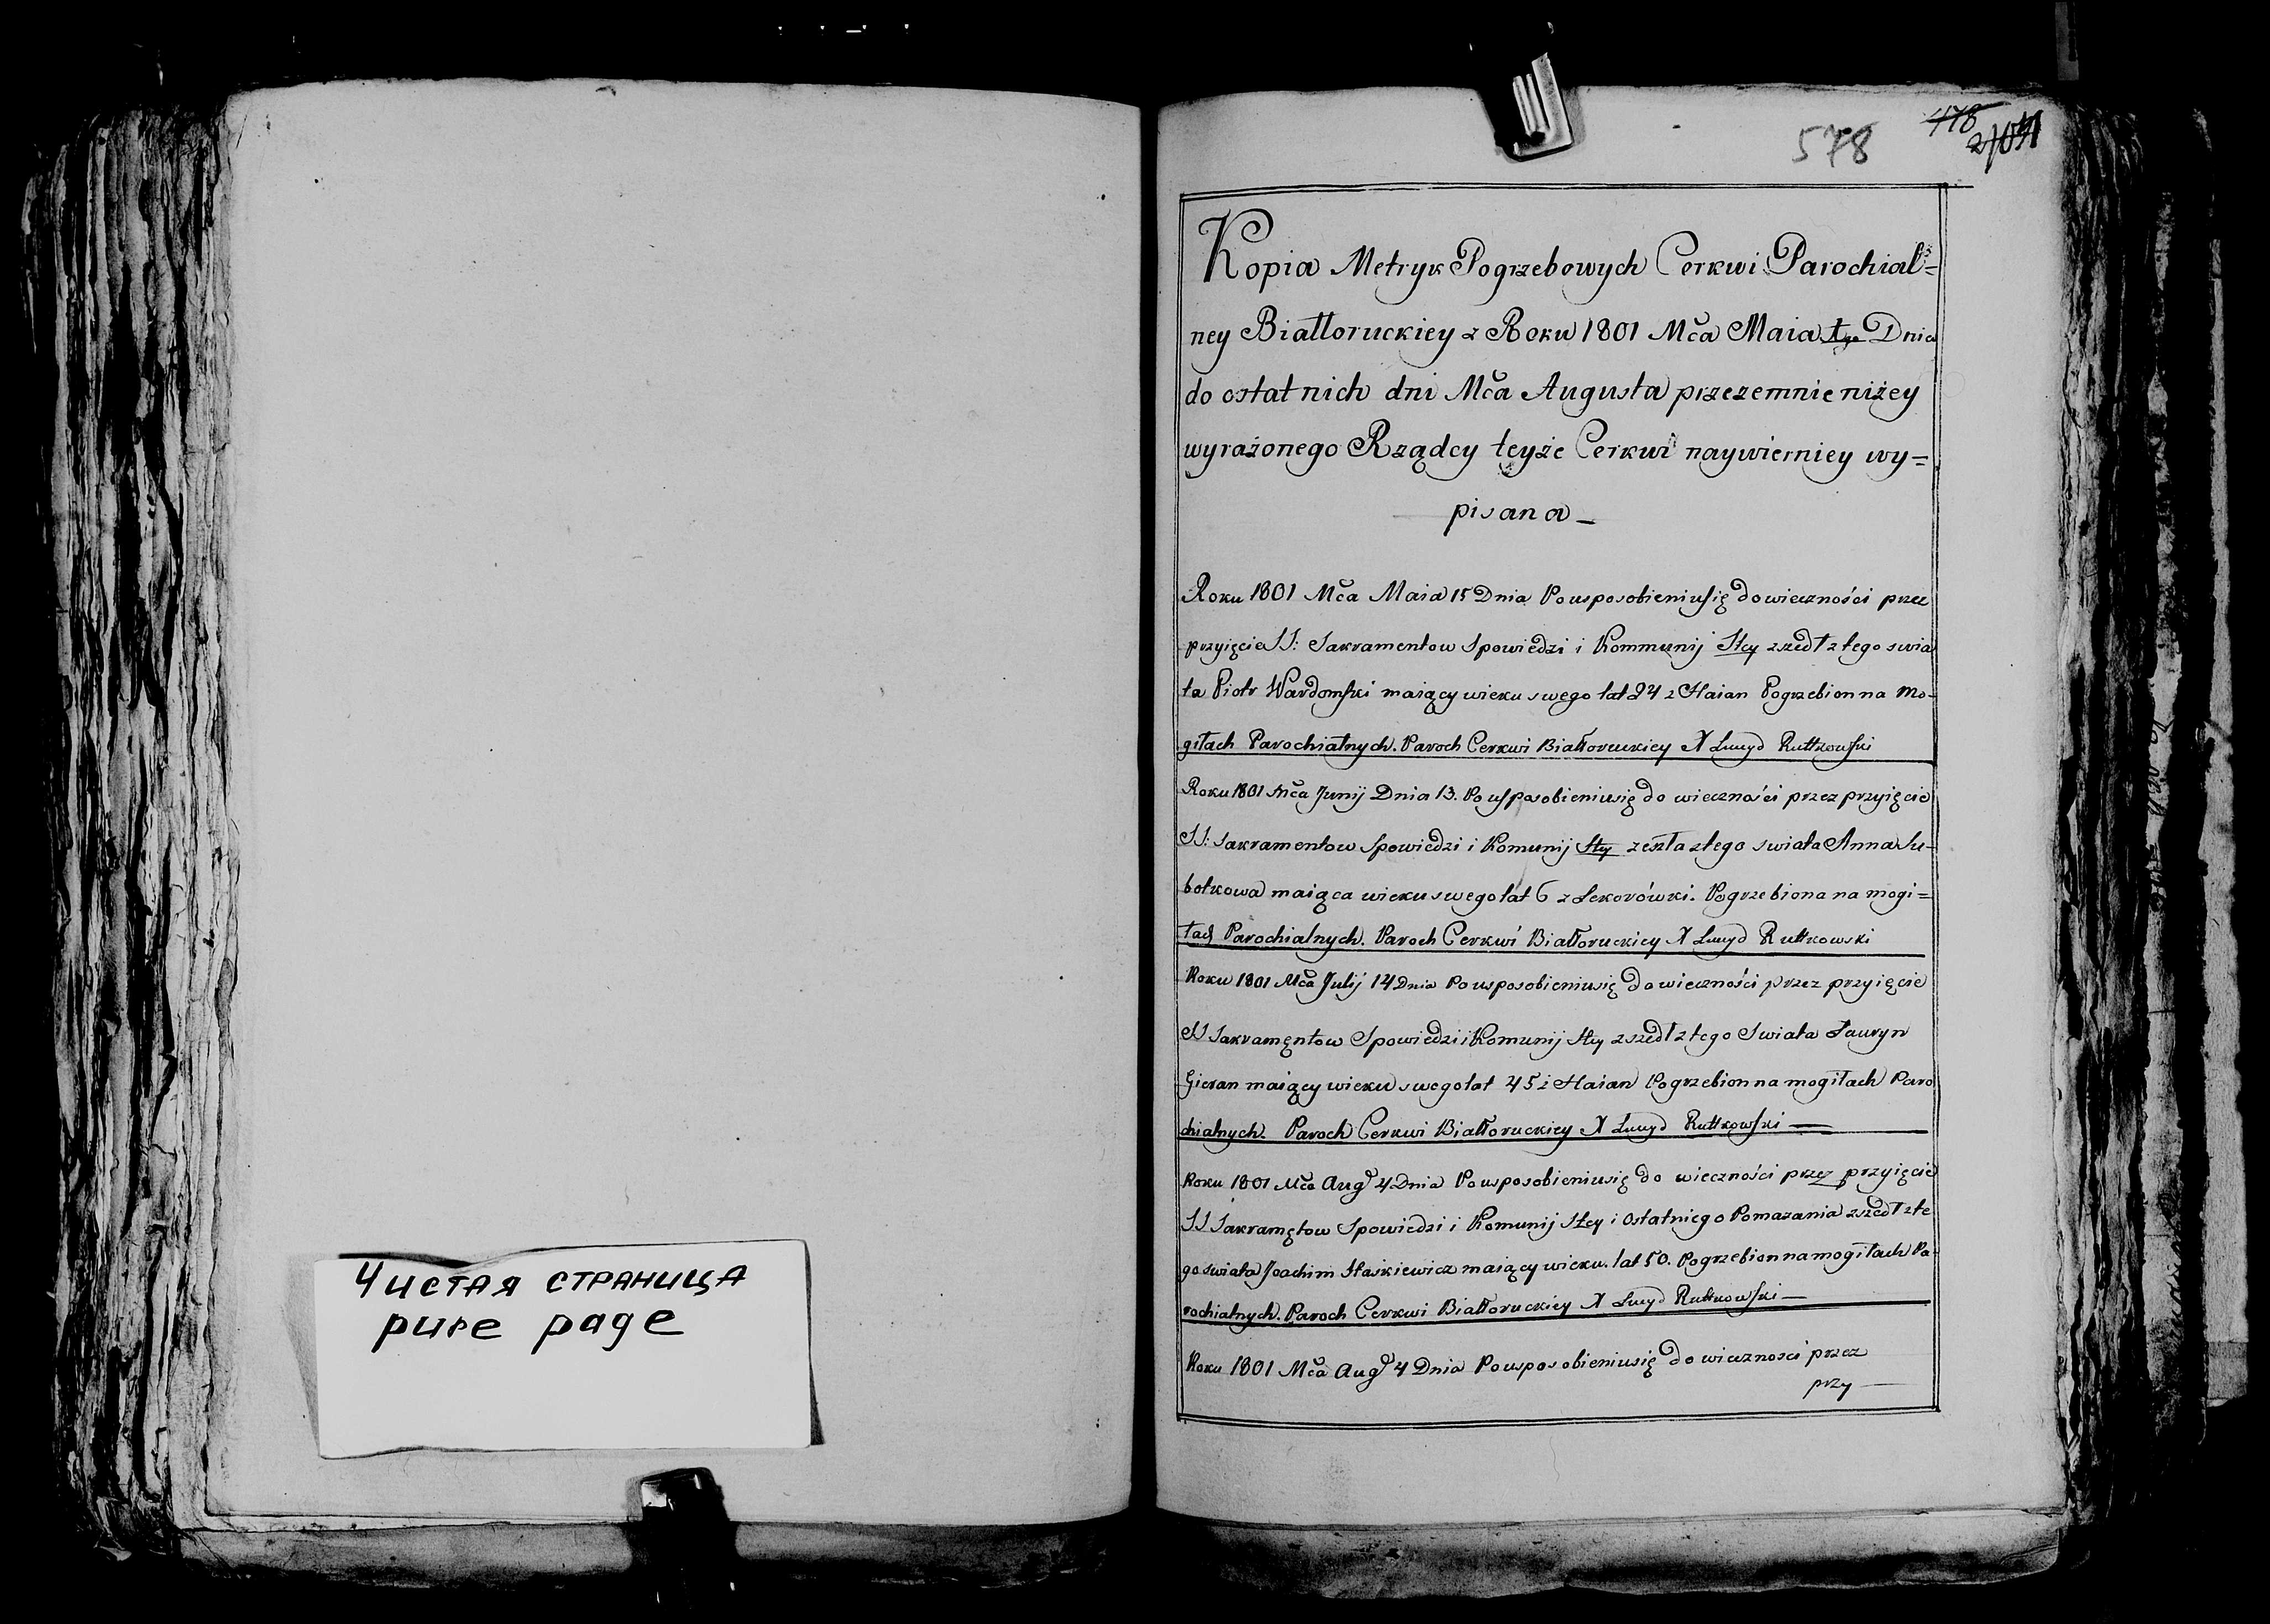 Чистая страница
pure page
578
478
Kopia Metryk Pogrzebowych Cerkwi Parochial=
ney Białłoruckiey z Roku 1801 Mča Maia Dnia
do ostatnich dni Mča Augusta przezemnie niżey
wyrażonego Rządcy teyże Cerkwi naywierniey wy=
pisana
Roku 1801 Mča Maia 15 Dnia Po usposobieniu się do wieczności przez
przyięcie SS: Sakramentow Spowiedzi i Kommunij Stey zszedł z tego swia
ta Piotr Wardomski maiący wieku swego lat z Haian Pogrzebion na Mo-
giłach Parochialnych. Paroch Cerkwi Białłoruckiey X Rutkowski
Roku 1801 Mča Junij Dnia 13. Po usposobieniu się do wieczności przez przyięcie
SS: Sakramentow Spowiedzi i Komunij Stey zeszła z tego swiata Anna Su-
botkowa maiąca wieku swego lat 6 z Sekorówki. Pogrzebiona na mogi=
łach Parochialnych. Paroch Cerkwi Białłoruckiey X Rutkowski
Roku 1801 Mča Julij 14 Dnia Po usposobieniu się do wieczności przez przyięcie
SS Sakramętow Spowiedzi i Komunij Stey zszedł z tego Swiata Lauryn
Gieran maiący wieku swego lat 45 z Haian Pogrzebion na mogiłach Paro
chialnych. Paroch Cerkwi Białłoruckiey X Rutkowski
Roku 1801 Mča Augͭ 4 Dnia Po usposobieniu się do wieczności przez przyięcie
SS Sakramętow Spowiedzi i Komunij Stey i Ostatniego Pomazania zszedł z te
go swiata Joachim Staskiewicz maiący wieku lat 50. Pogrzebion na mogiłach Pa-
rochialnych. Paroch Cerkwi Białłoruckiey X Rutkowski
Roku 1801 Mča Augͭ 4 Dnia Po usposobieniu się do wieczności przez
przy